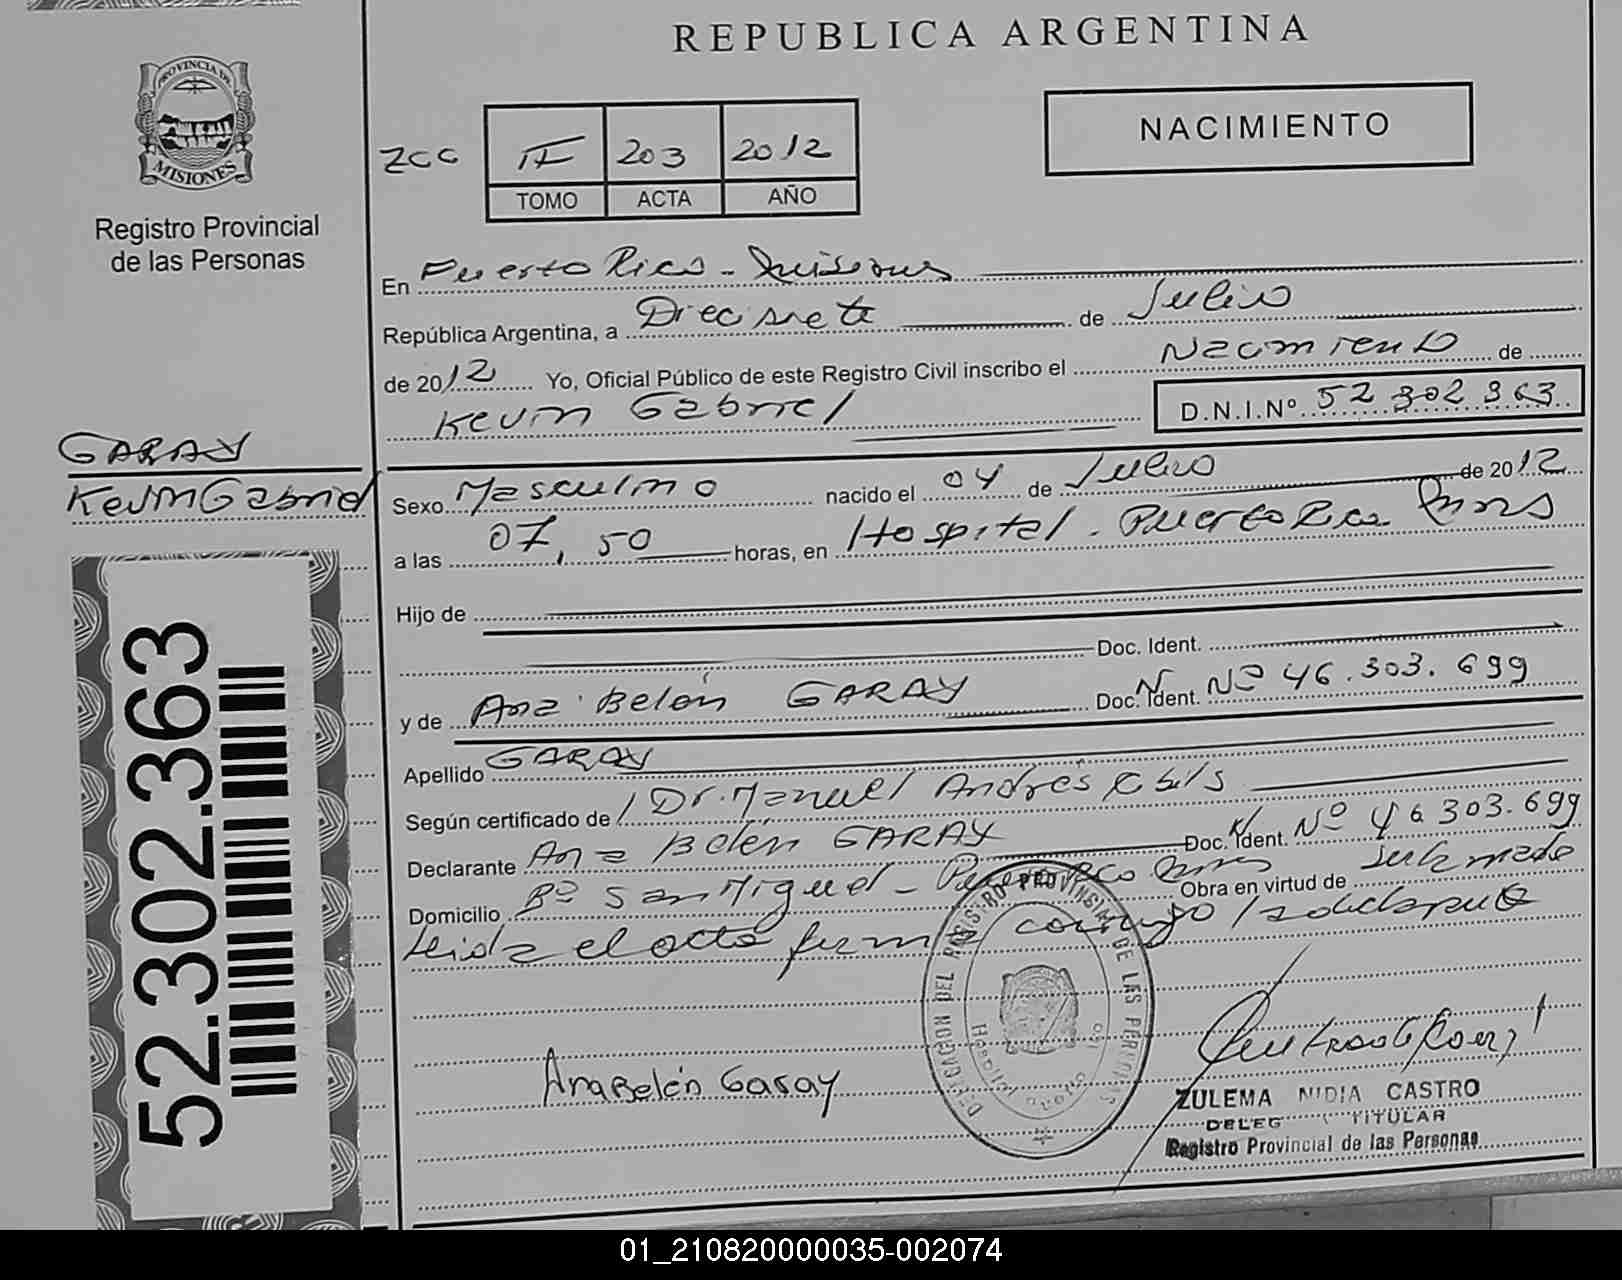 REPUBLICA ARGENTINA
PROVINCIA DE
MISIONES
Registro Provincial
de las Personas
NACIMIENTO
II 203 2012
TOMO ACTA AÑO
En Puerto Rico - Misiones
República Argentina, a Diecisiete de Julio
de 2012 Yo, Oficial Público de este Registro Civil inscribo el Nacimiento de
Kevin Gabriel D.N.I.Nº 52 302 363
GARAY
Kevin Gabriel
Sexo Masculino nacido el 04 de Julio de 2012
a las 07,50 horas, en Hospital - Puerto Rico Mnes
Hijo de
Doc. Ident.
y de Ana Belén GARAY Doc. Ident. Nº 46.303.699
Apellido GARAY
Según certificado de Dr. Manuel Andrés
Declarante Ana Belén GARAY Doc. Ident. Nº 46 303.699
Domicilio Bº San Miguel - Puerto Rico Mnes Obra en virtud de
Leida el acta firma conmigo la declarante
DELEGACION DEL REGISTRO PROVINCIAL DE LAS PERSONAS
Ana Belén Garay
ZULEMA NIDIA CASTRO
DELEG TITULAR
Registro Provincial de las Personas
52.302.363
01_210820000035-002074